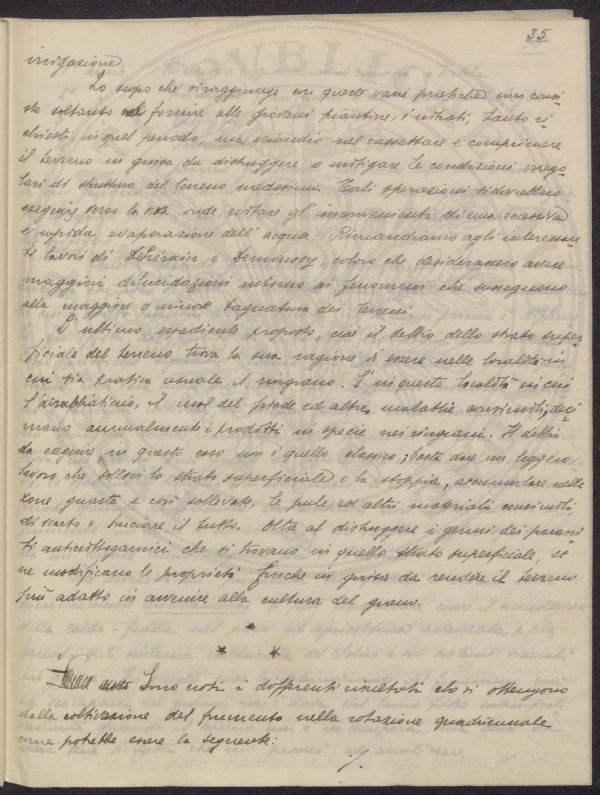 35
irrigazione.
Lo scopo che si raggiunge in queste varie pratiche non consi-
ste soltanto nel fornire alle giovani piantine, i nitrati, tanto ri-
chiesti in quel periodo, ma eziandio nel rassettare e comprimere
il terreno in guisa da distruggere o mitigare le condizioni irrego-
lari di struttura del terreno medesimo. Tali operazioni si dovrebbero
eseguire verso la sera onde evitare gl' inconvenienti di una eccessiva
e rapida evaporazione dell' acqua. Rimandiamo agli interessan-
ti lavori di Dehérain e Demoussy, coloro che desiderassero avere
maggiori dilucidazioni intorno ai fenomeni che susseguono
alla maggiore o minore bagnatura dei terreni.
L' ultimo espediente proposto, cioè il debbio dello strato super-
ficiale del terreno, trova la sua ragione di essere nelle località in
cui sia pratica usuale il ringrano. È in queste località in cui
l'arrabbiaticcio, il mal del piede ed altre malattie consimili, deci-
mano annualmente i prodotti in specie nei ringrani. Il debbio
da eseguire in questo caso non è quello classico; basta dare un leggero
lavoro che sollevi lo strato superficiale e la stoppia, accumulare nelle
zone guaste e così sollevate, le pule ed altri materiali consimili
di scarto e bruciare il tutto. Oltre al distruggere i germi dei paras-
ti anticrittogamici che si trovano in quello strato superficiale, se
ne modificano le proprietà fisiche in guisa da rendere il terreno
più adatto in avvenire alla cultura del grano.
*
* *
Sono noti i differenti risultati che si ottengono
dalla coltivazione del frumento nella rotazione quadriennale
come potrebbe essere la seguente: